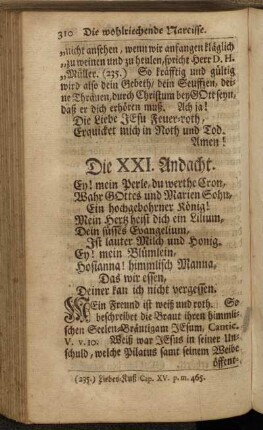 310 Die wohlriechende Narcisse.
„nicht ansehen, wenn wir anfangen kläglich
„zu weinen und zu heulen, spricht Herr D. H.
„Müller. (235.) So kräfftig und gültig
wird also dein Gebeth, dein Seufftzen, dei-
ne Thränen, durch Christum bey Gott seyn,
daß er dich erhören muß. Ach ja!
Die Liebe JEsu Feuer-roth,
Erquicket mich in Noth und Tod.
Amen!
Die XXI. Andacht.
Ey! mein Perle, du werthe Cron,
Wahr GOttes und Marien Sohn,
Ein hochgebohrner König!
Mein Hertz heist dich ein Lilium,
Dein süsses Evangelium,
Ist lauter Milch und Honig.
Ey! mein Blümlein,
Hosianna! himmlisch Manna,
Das wir essen,
Deiner kan ich nicht vergessen.
MEin Freund ist weiß und roth. So
beschreibet die Braut ihren himmli-
schen Seelen-Bräutigam JEsum, Cantic.
V. v. 10. Weiß war JEsus in seiner Un-
schuld, welche Pilatus samt seinem Weibe
öffent-
(235.) Liebes-Kuß Cap. XV. p. m. 465.